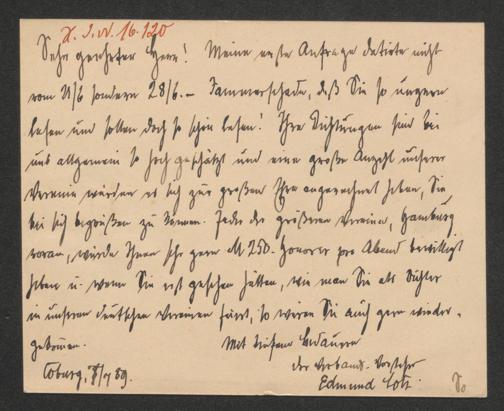 Z. J. W. 16.120
Sehr geehrter Herr! Meine erste Anfrage datirte nicht
vom 11/6 sondern 28/6. – Jammerschade, daß Sie so ungern
lesen und sollen doch so schön lesen! Ihre Dichtungen sind bei
uns allgemein so hoch geschätzt und eine große Anzahl unserer
Vereine würden es sich zur großen Ehre angerechnet haben, Sie
bei sich begrüßen zu können. Jeder der größeren Vereine, Hamburg
voran, würde Ihnen sehr gern M 250.- Honorar pro Abend bewilligt
haben u. wenn Sie erst gesehen hätten, wie man Sie als Dichter
in unseren deutschen Vereinen feiert, so wären Sie auch gern wieder-
gekommen. Mit tiefem Bedauern
Coburg, 89. der Verbands-Vorsteher
Edmund